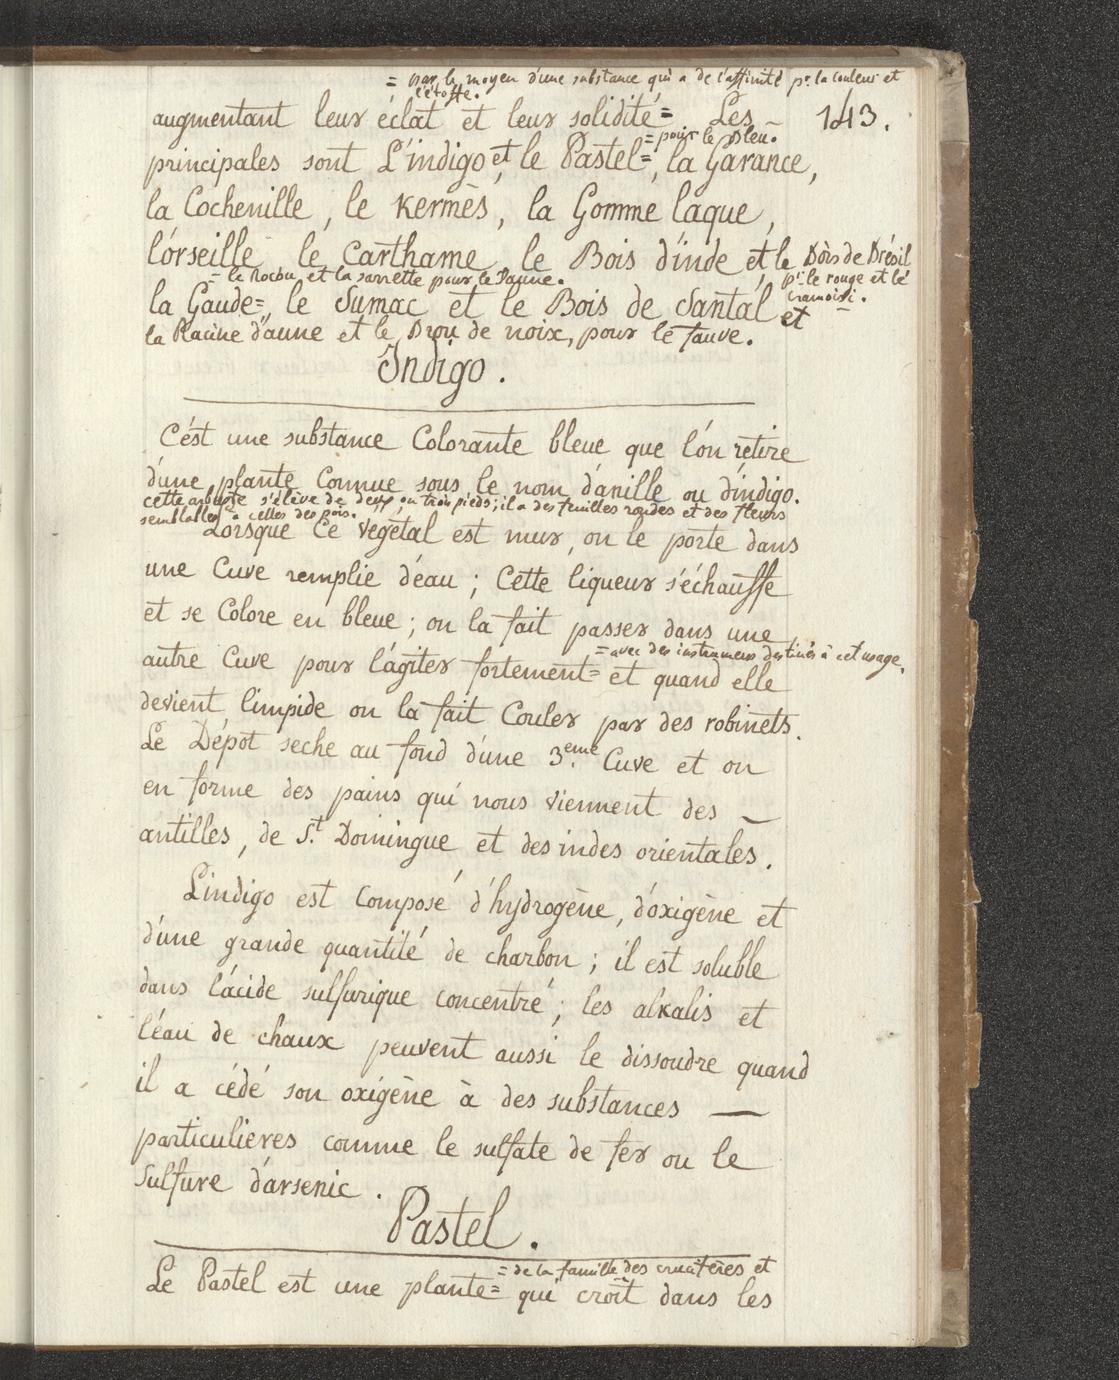 = par le moyen d'une substance qui a de l'affinité pr. la couleur et
l'étoffe.
augmentant leur éclat et leur solidité = Les — 143.
= pour le Bleu.
principales sont L'indigo et le Pastel =, la Garance,
la Cochenille, le Kermès, la Gomme laque,
l'orseille le Carthame le Bois d'inde et le Bois de Brésil
pr. le rouge et le
cramoisi.
= le Rocou et la sarrette pour le Jaune.
la Gaude =, le Sumac et le Bois de Santal et
la Racine d'aune et le Brou de noix, pour le fauve.
Indigo.
C'est une substance Colorante bleue que l'on retire
d'une plante Connue sous le nom d'anille ou d'indigo.
cette arbuste s'élève de deux ou trois pieds; il a des feuilles rondes et des fleurs
semblables à celles des pois.
Lorsque Ce végétal est mur, on le porte dans
une Cuve remplie d'eau; Cette liqueur s'échauffe
et se Colore en bleue; on la fait passer dans une
= avec des instrumens destinés à cet usage.
autre Cuve pour l'agiter fortement = et quand elle
devient limpide on la fait Couler par des robinets.
Le Dépot seche au fond d'une 3.eme Cuve et on
en forme des pains qui nous viennent des —
antilles, de St. Domingue et des indes orientales.
L'indigo est Composé d'hydrogène, d'oxigène et
d'une grande quantité de charbon; il est soluble
dans l'acide sulfurique concentré; les alkalis et
l'eau de chaux peuvent aussi le dissoudre quand
il a cédé son oxigène à des substances —
particulieres comme le sulfate de fer ou le
Sulfure d'arsenic.
Pastel.
= de la famille des crucifères et
Le Pastel est une plante = qui croît dans les